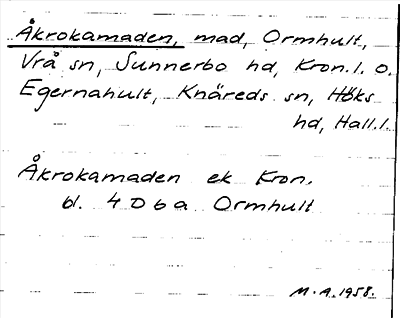 Åkrokamaden, mad, Ormhult,
Vrå sn, Sunnerbo hd, Kron. l. o.
Egernahult, Knäreds sn, Höks
hd, Hall. l.
Åkrokamaden ek Kron.
bl. 4 D 6 a Ormhult
M. A. 1958.